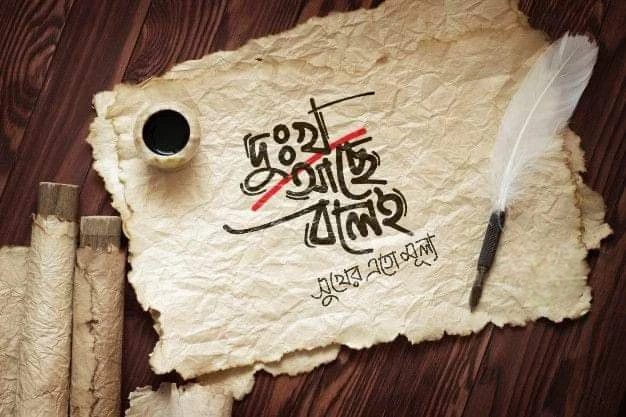 দুঃখ
আছে
বলেই
সুখের এতো মূল্য